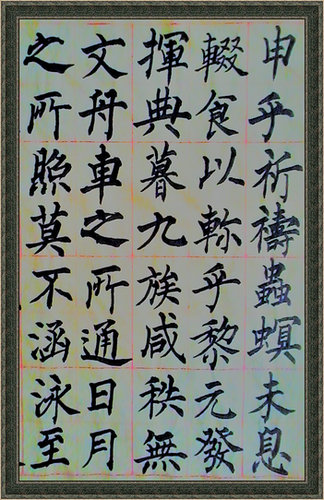 申乎祈禱蟲螟未息
輟食以軫乎黎元發
揮典暮九族咸秩無
文舟車之所通日月
之所照莫不涵泳至